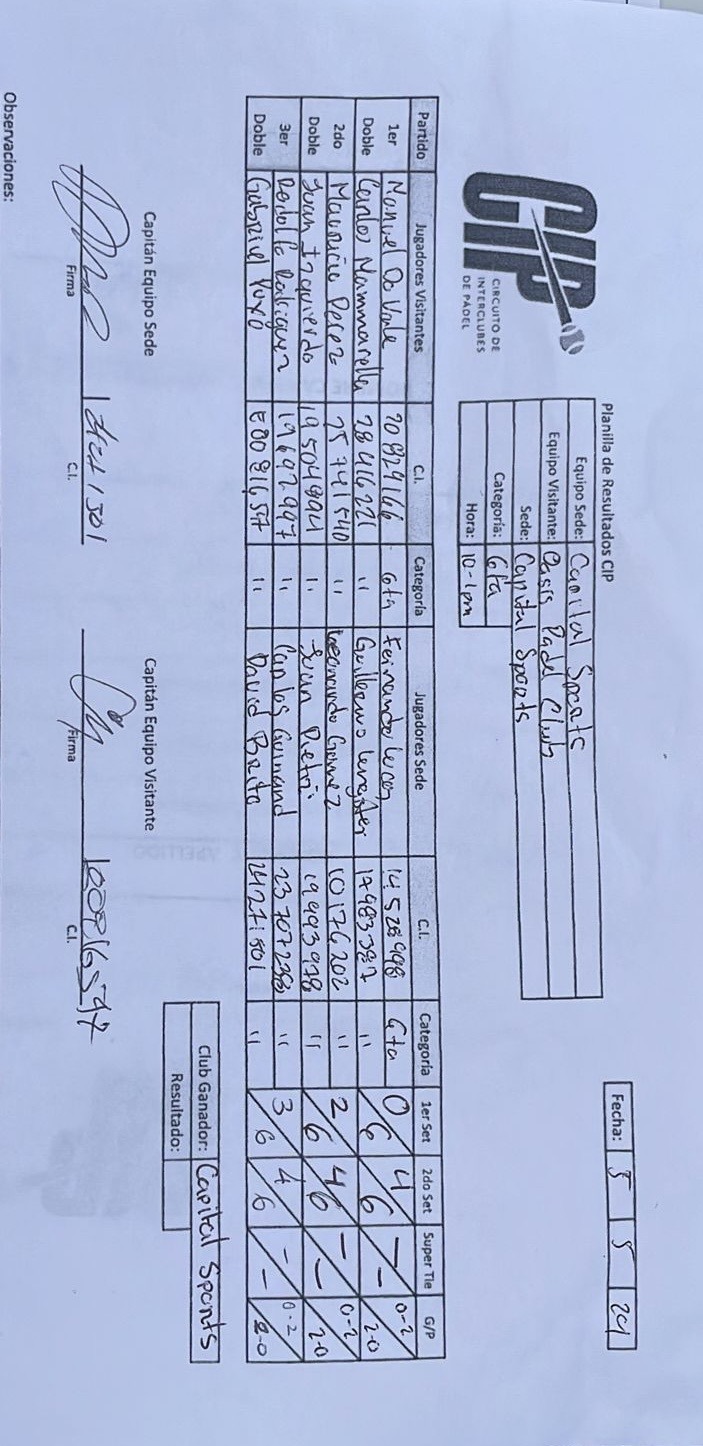 CIP
CIRCUITO DE
INTERCLUBES
DE PÁDEL
Planilla de Resultados CIP
Fecha: 5 5 24
Equipo Sede: Capital Sports
Equipo Visitante: Oasis Padel Club
Sede: Capital Sports
Categoría: 6ta
Hora: 10-1pm
Partido Jugadores Visitantes C.I. Categoría Jugadores Sede C.I. Categoría 1er Set 2do Set Super Tie G/P
1er Manuel Do Vale 20829166 6ta Fernando 14528998 6ta 0 4 - 0-2
Doble Carlos Mammarella 28416221 " Guillermo 17983387 " 6 6 - 2-0
2do Mauricio Perez 25741540 " Leonardo Gomez 10176202 " 2 4 - 0-2
Doble Juan Izquierdo 19504894 " Juan Pietri 19993978 " 6 6 - 2-0
3er Rodolfo Rodriguez 19692997 " Carlos Guinand " 3 4 - 0-2
Doble Gabriel " David Brito 24271501 " 6 6 - 2-0
Club Ganador: Capital Sports
Resultado:
Capitán Equipo Sede
Capitán Equipo Visitante
Firma
C.I.
Firma
C.I.
Observaciones: